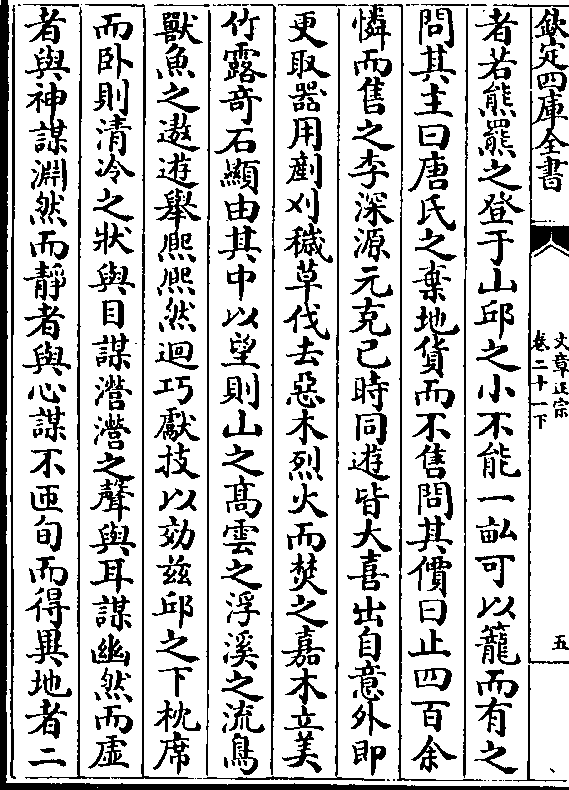 欽定四庫全書
文章正宗
卷二十一下
五
者若熊羆之登于山邱之小不能一畝可以籠而有之
問其主曰唐氏之棄地貨而不售問其價曰止四百余
憐而售之李深源元克已時同遊皆大喜出自意外即
更取器用剷刈穢草伐去惡木烈火而焚之嘉木立美
竹露奇石顯由其中以望則山之髙雲之浮溪之流鳥
獸魚之遨遊舉熈熈然迴巧獻技以効兹邱之下枕席
而卧則清泠之狀與目謀瀯瀯之聲與耳謀幽然而虛
者與神謀淵然而靜者與心謀不匝旬而得異地者二